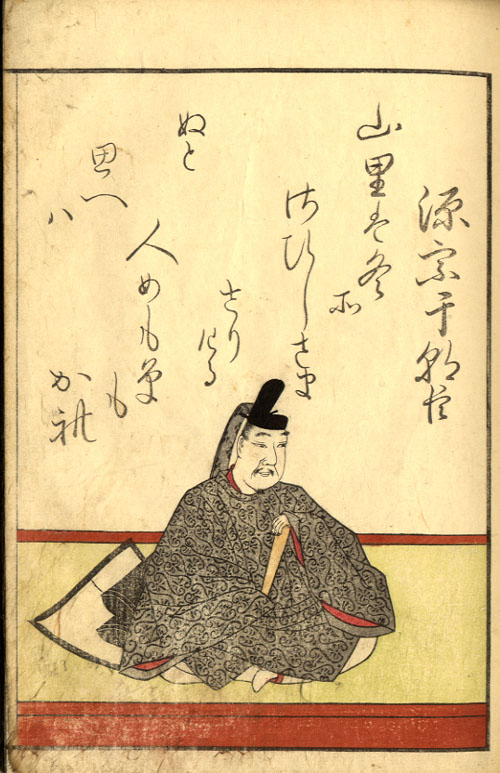 源宗于朝臣
山里は冬
そ
さひしさま
さり
ける
人めも草
も
かれ
ぬと
思へ
ハ